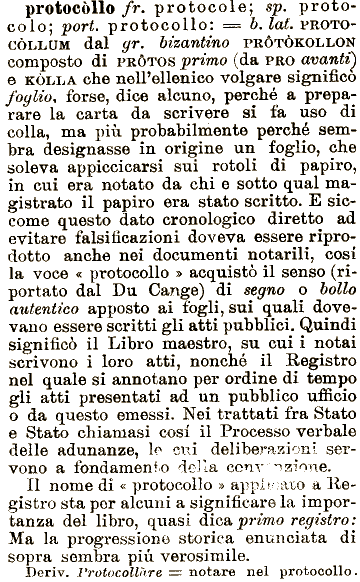 protocòllo fr. protocole; sp. proto-
colo; port. protocollo: = b. lat. PROTO-
CÒLLUM dal gr. bizantino PRÔTÒKOLLON
composto di PRÔTOS primo (da PRO avanti)
e KÒLLA che nell'ellenico volgare significò
foglio, forse, dice alcuno, perché a prepa-
rare la carta da scrivere si fa uso di
colla, ma più probabilmente perché sem-
bra designasse in origine un foglio, che
soleva appiccicarsi sui rotoli di papiro,
in cui era notato da chi e sotto qual ma-
gistrato il papiro era stato scritto. E sic-
come questo dato cronologico diretto ad
evitare falsificazioni doveva essere ripro-
dotto anche nei documenti notarili, cosí
la voce « protocollo » acquistò il senso (ri-
portato dal Du Cange) di segno o bollo
autentico apposto ai fogli, sui quali dove-
vano essere scritti gli atti pubblici. Quindi
significò il Libro maestro, su cui i notai
scrivono i loro atti, nonché il Registro
nel quale si annotano per ordine di tempo
gli atti presentati ad un pubblico ufficio
o da questo emessi. Nei trattati fra Stato
e Stato chiamasi cosí il Processo verbale
delle adunanze, le cui deliberazioni ser-
vono a fondamento della convenzione.
Il nome di « protocollo » applicato a Re-
gistro sta per alcuni a significare la impor-
tanza del libro, quasi dica primo registro:
Ma la progressione storica enunciata di
sopra sembra piú verosimile.
Deriv. Protocollàre = notare nel protocollo.